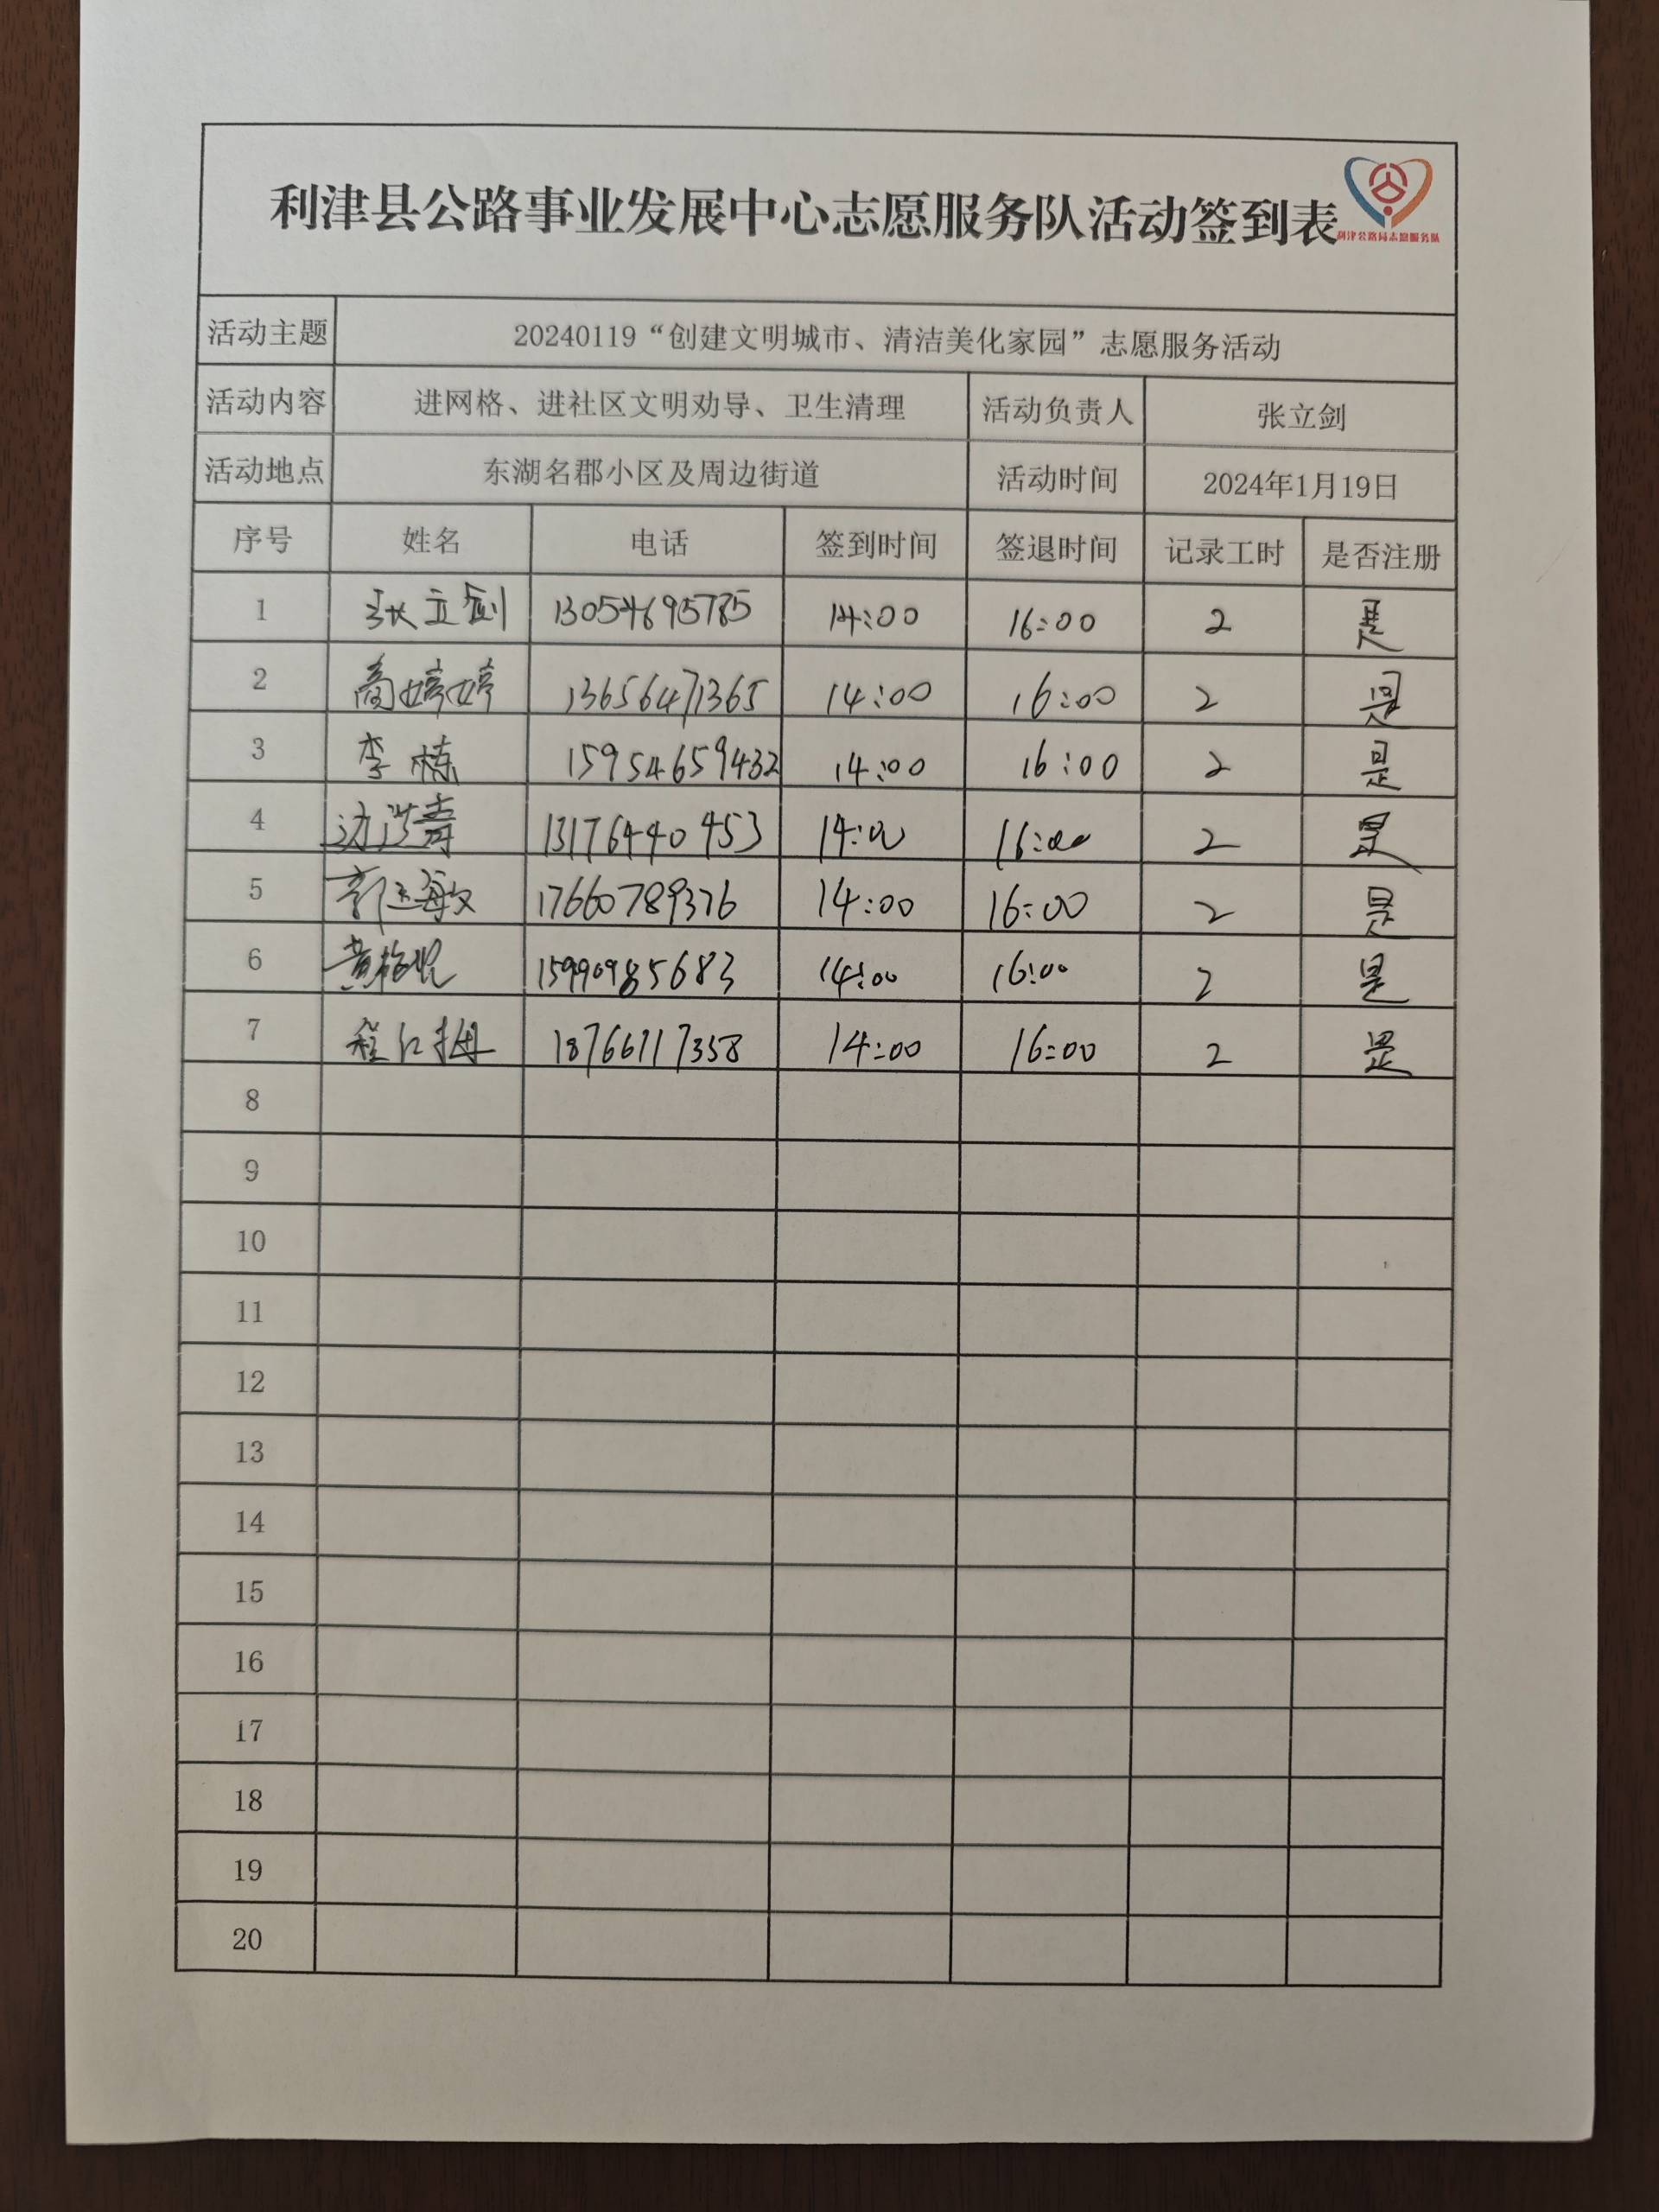 利津县公路事业发展中心志愿服务队活动签到表
利津公路局志愿服务队
活动主题 20240119“创建文明城市、清洁美化家园”志愿服务活动
活动内容 进网格、进社区文明劝导、卫生清理 活动负责人 张立剑
活动地点 东湖名郡小区及周边街道 活动时间 2024年1月19日
序号 姓名 电话 签到时间 签退时间 记录工时 是否注册
1 张立剑 13054695785 14:00 16:00 2 是
2 商婷婷 13656471365 14:00 16:00 2 是
3 李栋 15954659432 14:00 16:00 2 是
4 边洪青 13176440453 14:00 16:00 2 是
5 郭玉敏 17660789376 14:00 16:00 2 是
6 黄 15990985683 14:00 16:00 2 是
7 程江 18766717358 14:00 16:00 2 是
8
9
10
11
12
13
14
15
16
17
18
19
20